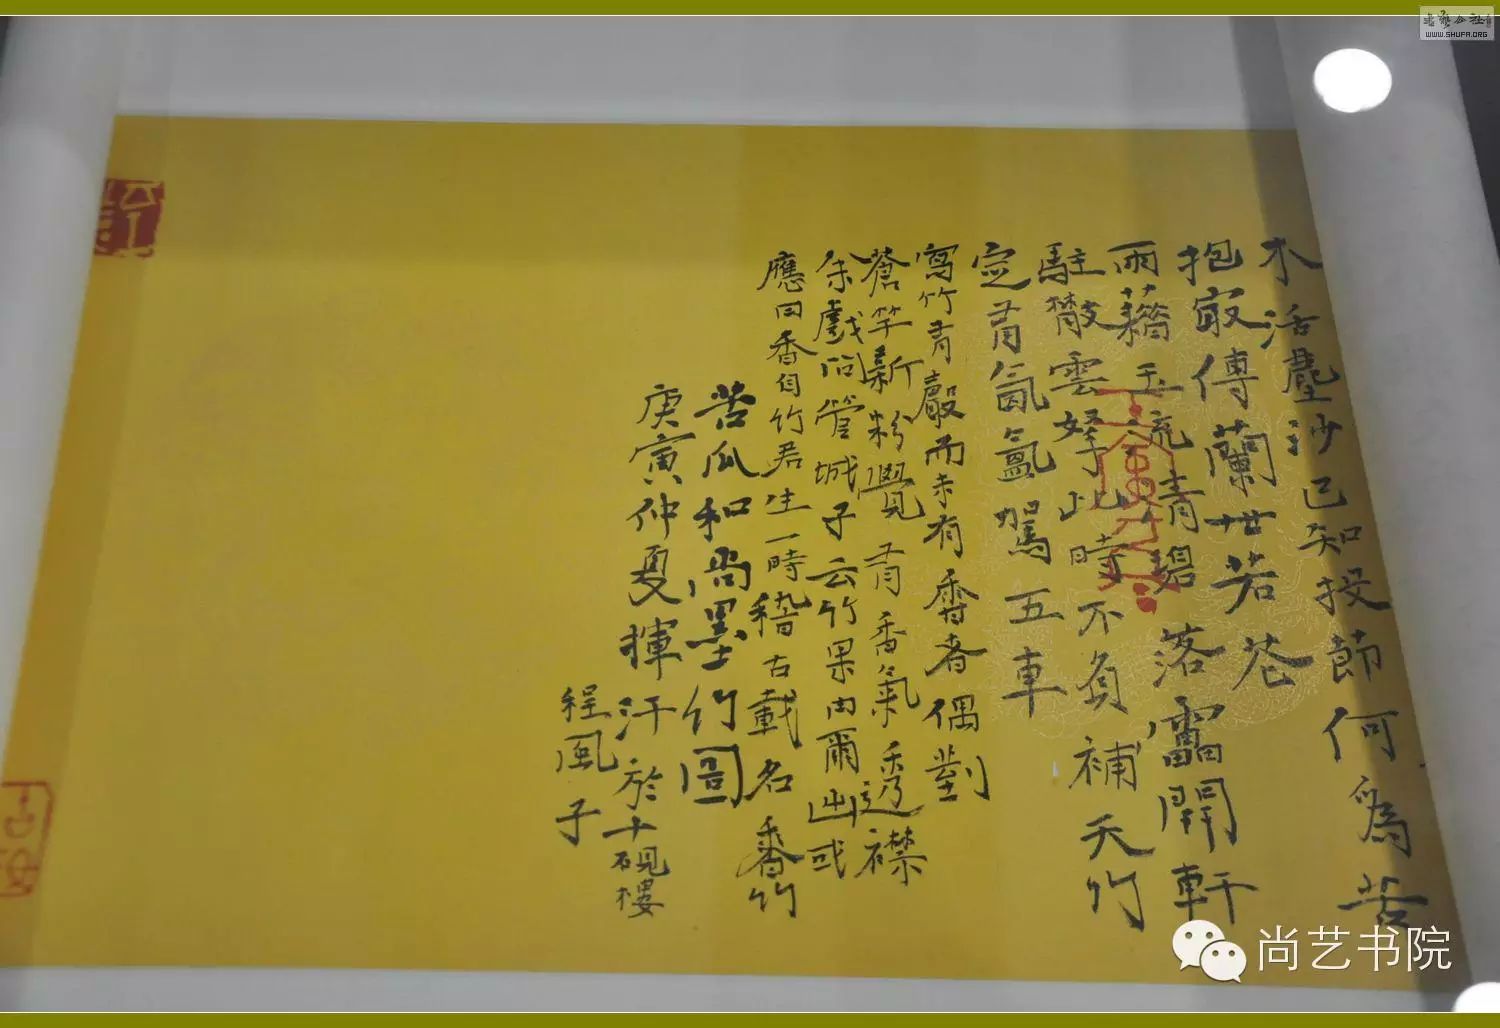 木活塵沙已知投節何為苦
抱寂傳蘭世若花
雨藉玉流青碧落雷開軒
駐散雲髮此時不負補天竹
定有氤氳駕五車
寫竹青嚴而未有香者偶對
蒼竿新粉覺有香氣透襟
余戲問管城子云竹果內爾出或
應曰香自竹君生一時稽古載名香竹
苦瓜和尚墨竹圖
庚寅仲夏揮汗於十硯樓
程風子
尚艺书院
书艺公社
WWW.SHUFA.ORG